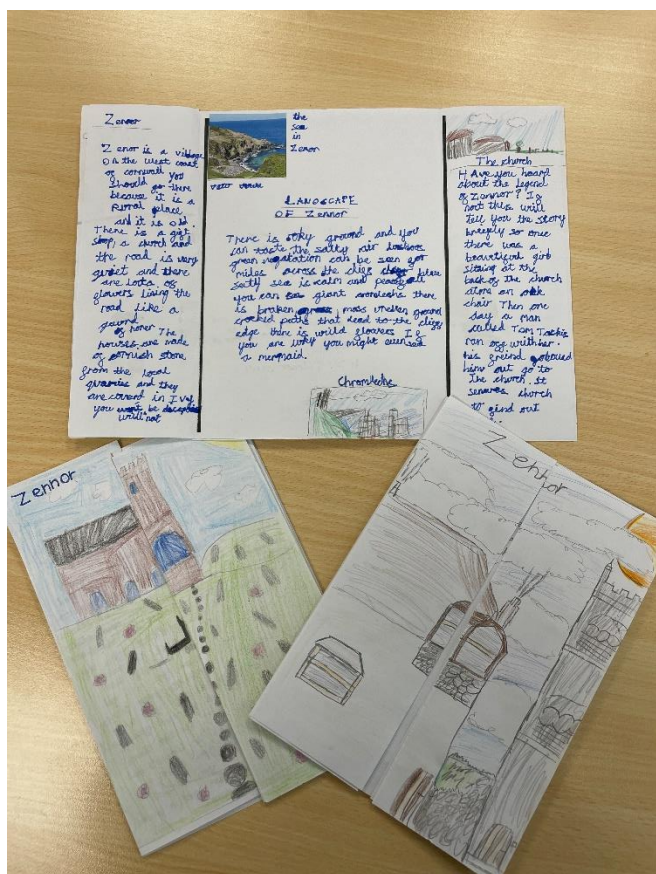 Zennor
Zenor is a village
on the west coast
of cornwall you
should go there
because it is a
Rural place
and it is old
There is a gift
shop, a church and
the road is very
quiet and there
are lots of
flowers lining the
road like a
guard
of honer The
houses are made
of cornish stone
from the local
quarries and they
are coverd in Ivy
you wont be
will not
the
sea
in
Zenor
LANDSCAPE
OF Zennor
There is ground and you
can taste the salty air
green can be seen for
miles across the cliffs blue
salty sea is calm and peacefull
you can see giant there
is broken moss uneven ground
crooked paths that lead to the cliffs
edge there is wild flowers If
you are lucky you might even see
a mermaid.
The church
HAve you heard
about the legend
of Zennor? If
not this will
tell you the story
briefly so once
there was a
beautifull girl
sitting at the
back of the church
alone on
chair Then one
day a man
called Tom
ran off
his freind
him out go to
The church. St
senaras church
to find out
Zennor
Zennor